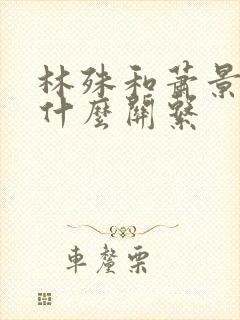 林殊和萧景
什麼關繫
車釐栗